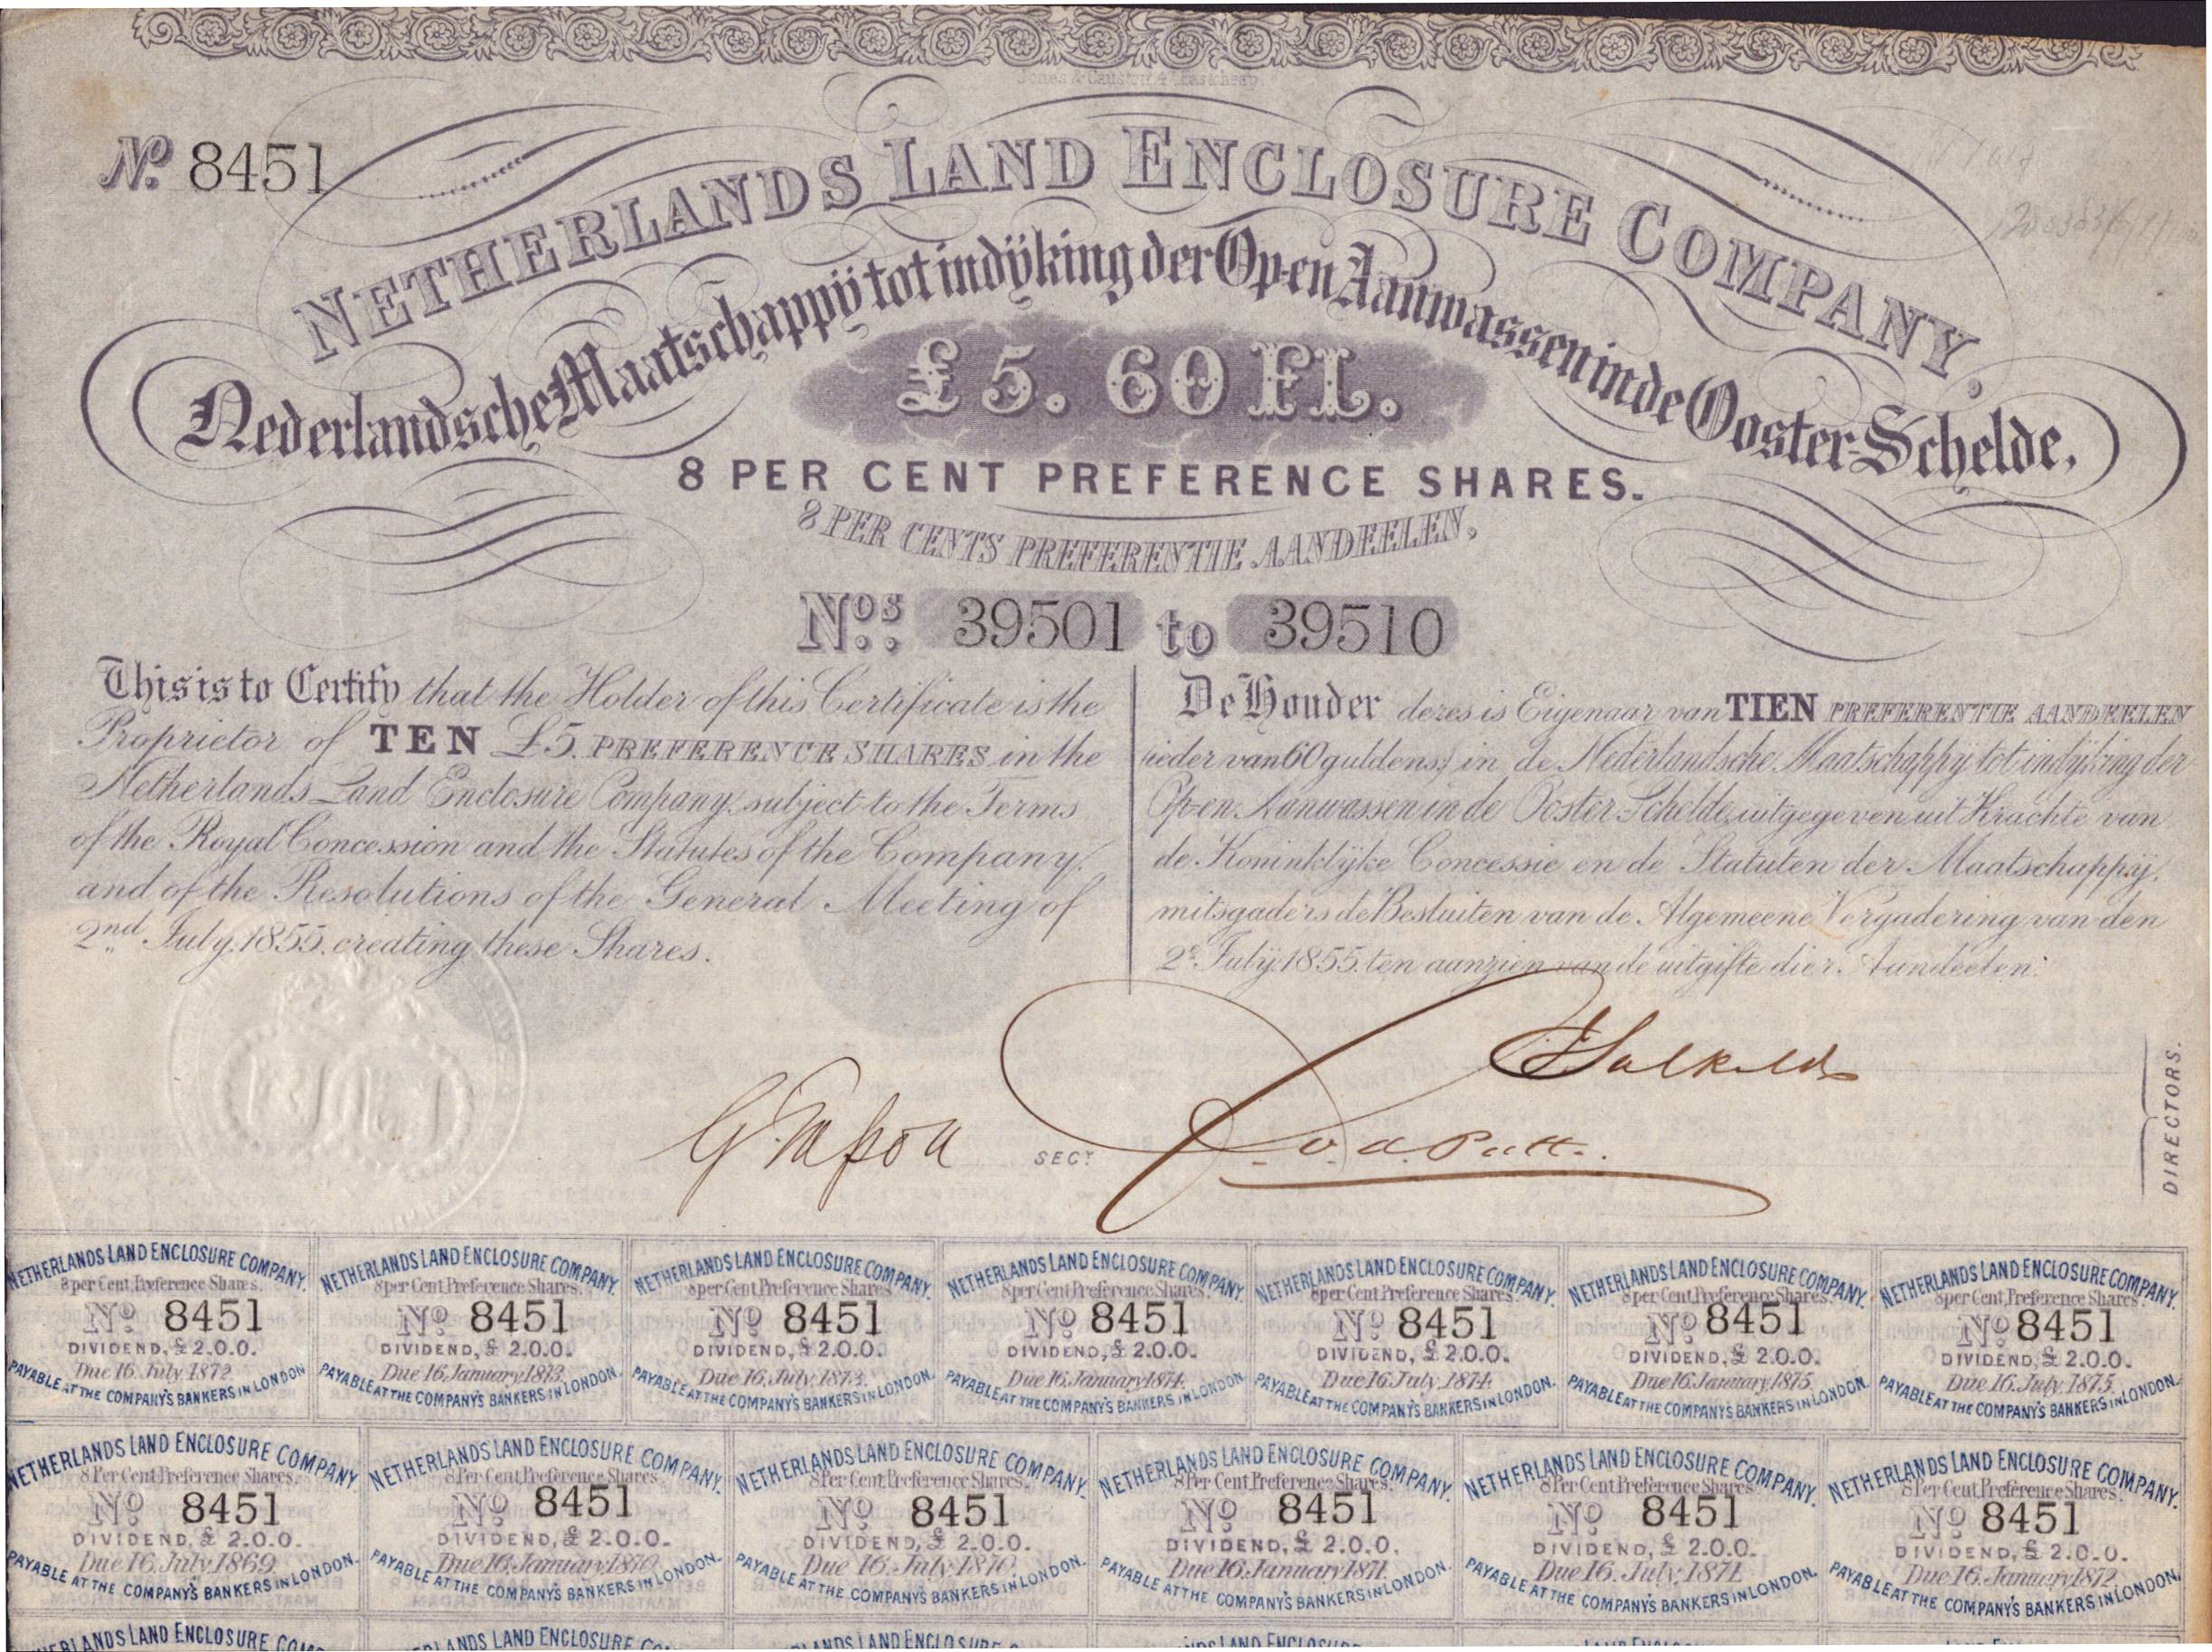 Jones & Causton 47 Eastcheap
No. 8451
NETHERLANDS LAND ENCLOSURE COMPANY.
Nederlandsche Maatschappÿ tot indÿking der Op-en Aanwassen in de Ooster-Schelde,
£5. 60 FL.
8 PER CENT PREFERENCE SHARES.
8 PER CENTS PREFERENTIE AANDEELEN,
Nos.. 39501 to 39510
This is to Certify that the Holder of this Certificate is the
Proprietor of TEN £5. PREFERENCE SHARES in the
Netherlands Land Enclosure Company, subject to the Terms
of the Royal Concession and the Statutes of the Company,
and of the Resolutions of the General Meeting of
2nd July, 1855, creating these Shares.
De Houder dezes is Eigenaar van TIEN PREFERENTIE AANDEELEN
(ieder van 60 guldens) in de Nederlandsche Maatschappÿ tot indÿking der
Op-en Aanwassen in de Ooster Schelde, uitgegeven uit Krachte van
de Koninklÿke Concessie en de Statuten der Maatschappÿ,
mitsgaders de Besluiten van de Algemeene Vergadering van den
2e Julÿ 1855 ten aanzien van de uitgifte dier Aandeelen.
SECY
DIRECTORS.
NETHERLANDS LAND ENCLOSURE COMPANY.
8 per Cent Preference Shares.
No 8451
DIVIDEND, £ 2.0.0.
Due 16, July, 1872
PAYABLE AT THE COMPANY'S BANKERS IN LONDON
NETHERLANDS LAND ENCLOSURE COMPANY.
8 per Cent Preference Shares.
No 8451
DIVIDEND, £ 2.0.0.
Due 16, January, 1873,
PAYABLE AT THE COMPANY'S BANKERS IN LONDON.
NETHERLANDS LAND ENCLOSURE COMPANY.
8 per Cent Preference Shares
No 8451
DIVIDEND, £ 2.0.0.
Due 16, July, 1873.
PAYABLE AT THE COMPANY'S BANKERS IN LONDON.
NETHERLANDS LAND ENCLOSURE COMPANY.
8 per Cent Preference Shares.
No 8451
DIVIDEND, £ 2.0.0.
Due 16, January 1874,
PAYABLE AT THE COMPANY'S BANKERS IN LONDON
NETHERLANDS LAND ENCLOSURE COMPANY.
8 per Cent Preference Shares.
No 8451
DIVIDEND, £ 2.0.0.
Due 16 July, 1874.
PAYABLE AT THE COMPANY'S BANKERS IN LONDON.
NETHERLANDS LAND ENCLOSURE COMPANY.
8 per Cent Preference Shares.
No 8451
DIVIDEND, £ 2.0.0.
Due 16. January, 1875.
PAYABLE AT THE COMPANY'S BANKERS IN LONDON.
NETHERLANDS LAND ENCLOSURE COMPANY.
8 per Cent Preference Shares.
No 8451
DIVIDEND, £ 2.0.0.
Due 16. July, 1875.
PAYABLE AT THE COMPANY'S BANKERS IN LONDON.
NETHERLANDS LAND ENCLOSURE COMPANY
8 Per Cent Preference Shares.
No 8451
DIVIDEND, £ 2.0.0.
Due 16, July, 1869.
PAYABLE AT THE COMPANY'S BANKERS IN LONDON.
NETHERLANDS LAND ENCLOSURE COMPANY.
8 Per Cent Preference Shares.
No 8451
DIVIDEND, £ 2.0.0.
Due 16, January 1870.
PAYABLE AT THE COMPANY'S BANKERS IN LONDON.
NETHERLANDS LAND ENCLOSURE COMPANY.
8 Per Cent Preference Shares.
No 8451
DIVIDEND, £ 2.0.0.
Due 16. July, 1870.
PAYABLE AT THE COMPANY'S BANKERS IN LONDON.
NETHERLANDS LAND ENCLOSURE COMPANY.
8 Per Cent Preference Shares.
No 8451
DIVIDEND, £ 2.0.0.
Due 16. January 1871.
PAYABLE AT THE COMPANY'S BANKERS IN LONDON.
NETHERLANDS LAND ENCLOSURE COMPANY.
8 Per Cent Preference Shares.
No 8451
DIVIDEND, £ 2.0.0.
Due 16. July, 1871.
PAYABLE AT THE COMPANY'S BANKERS IN LONDON.
NETHERLANDS LAND ENCLOSURE COMPANY.
8 Per Cent Preference Shares.
No 8451
DIVIDEND, £ 2.0.0.
Due 16. January, 1872.
PAYABLE AT THE COMPANY'S BANKERS IN LONDON.
LANDS LAND ENCLOSURE
LANDS LAND ENCLOSURE
LANDS LAND ENCLOSURE
LAND ENCLOSURE